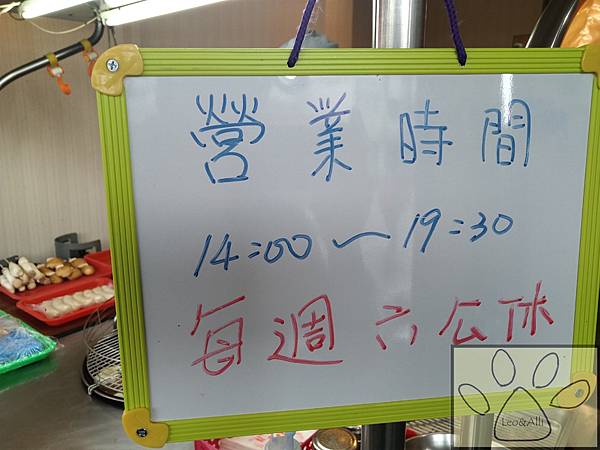 營業時間
14:00~19:30
每週六公休
Leo&Alli